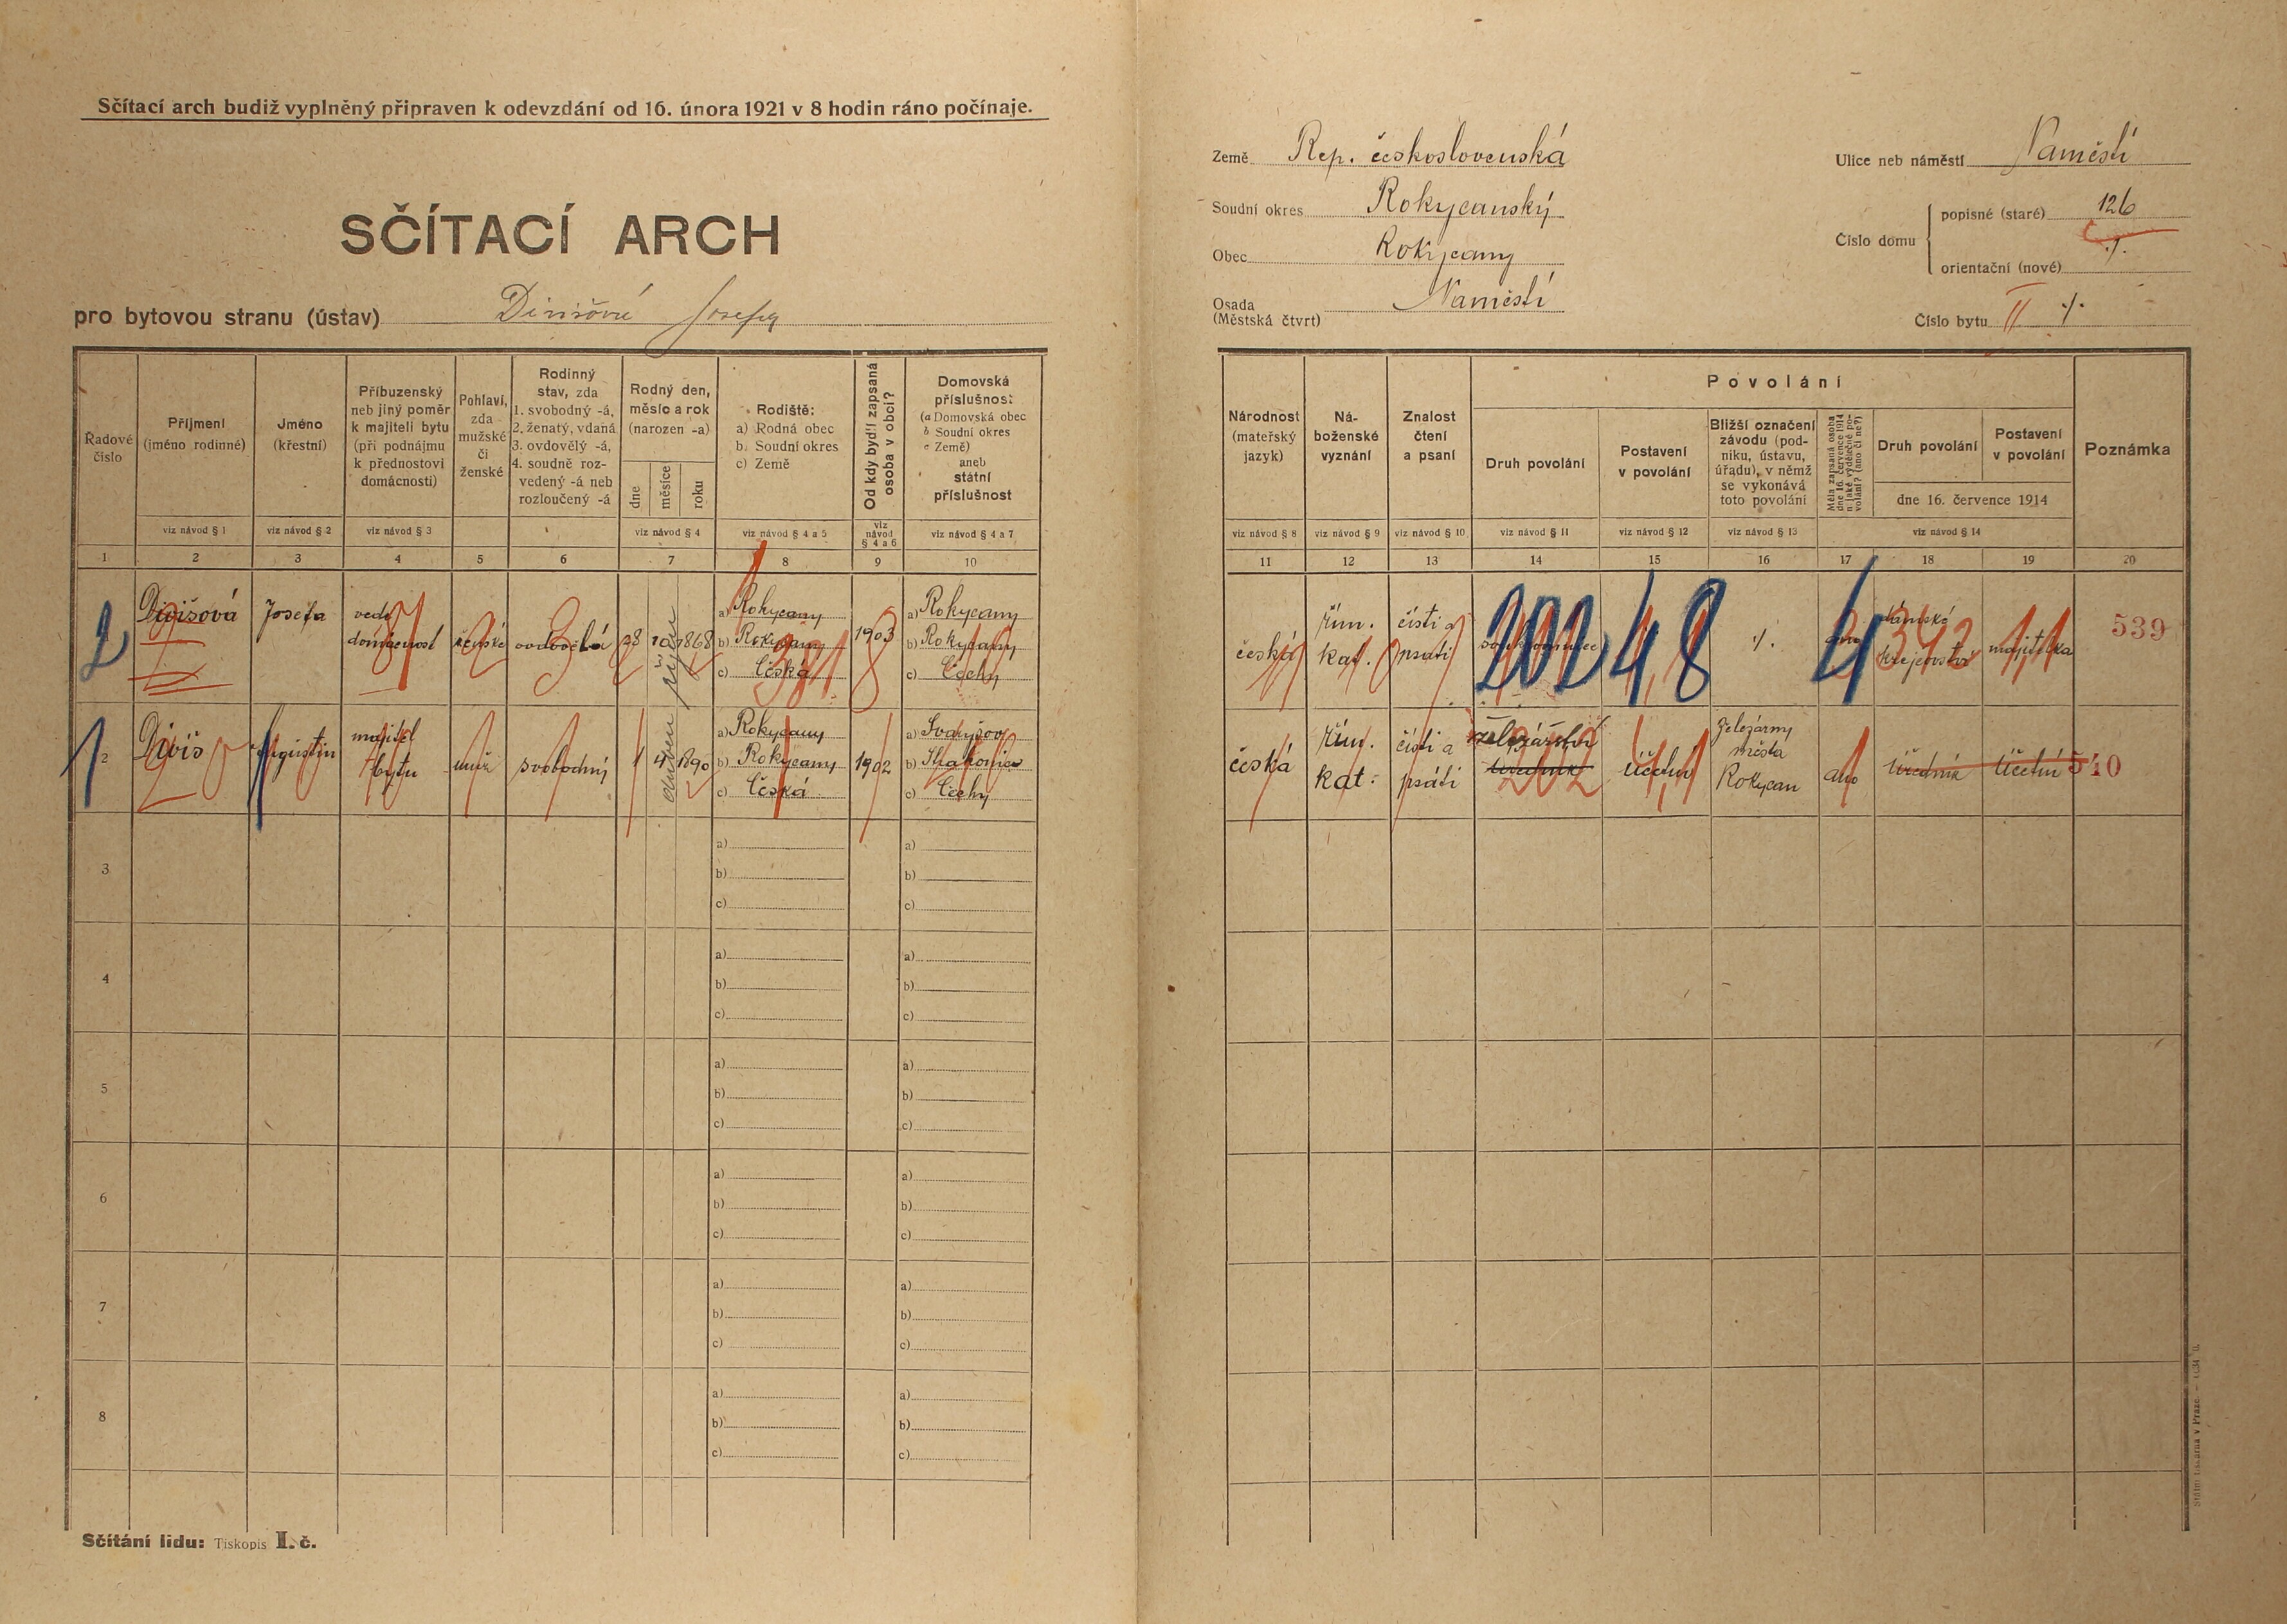 Sčítací arch budiž vyplněný připraven k odevzdání od 16. února 1921 v 8 hodin ráno počínaje.
SČÍTACÍ ARCH
pro bytovou stranu (ústav) Divišová Josefa
Země Rep. československá
Soudní okres Rokycanský
Obec Rokycany
Osada Naměstí
(Městská čtvrt)
Ulice neb náměstí Naměstí
Číslo domu
popisné (staré) 126
orientační (nové) ·/.
Číslo bytu II ·/.
Řadové číslo
Příjmení (jméno rodinné)
Jméno (křestní)
Příbuzenský neb jiný poměr k majiteli bytu (při podnájmu k přednostovi domácnosti)
Pohlaví, zda mužské či ženské
Rodinný stav, zda 1. svobodný -á, 2. ženatý, vdaná 3. ovdovělý -á, 4. soudně rozvedený -á neb rozloučený -á
Rodný den, měsíc a rok (narozen -a)
dne
měsíce
roku
Rodiště:
a) Rodná obec
b) Soudní okres
c) Země
Od kdy bydlí zapsaná osoba v obci?
Domovská příslušnost
(a Domovská obec
b Soudní okres
c Země)
aneb
státní
příslušnost
viz návod § 1
viz návod § 2
viz návod § 3
viz návod § 4
viz návod § 4 a 5
viz návod § 4 a 6
viz návod § 4 a 7
1 2 3 4 5 6 7 8 9 10
Národnost (mateřský jazyk)
Náboženské vyznání
Znalost čtení a psaní
Povolání
Druh povolání
Postavení v povolání
Bližší označení závodu (podniku, ústavu, úřadu), v němž se vykonává toto povolání
Měla zapsaná osoba dne 16. července 1914 nějaké výdělečné povolání? (ano či ne?)
Druh povolání
Postavení v povolání
dne 16. července 1914
Poznámka
viz návod § 8
viz návod § 9
viz návod § 10
viz návod § 11
viz návod § 12
viz návod § 13
viz návod § 14
11 12 13 14 15 16 17 18 19 20
2
Divišová Josefa
vede domácnost
ženské
ovdovělá
28 10 1868
říjen
a) Rokycany
b) Rokycany
c) Česká
1903
a) Rokycany
b) Rokycany
c) Čechy
česká
řím. kat.
čísti a psáti
202
48
·/.
ano
4
dámské krejčovství
majitelka
539
1
2
Diviš Augustin
majitel bytu
muž
svobodný
1 4 1890
duben
a) Rokycany
b) Rokycany
c) Česká
1902
b) Strakonice
c) Čechy
česká
řím. kat:
čísti a psáti
železářství
úředník
202
účetní
Železárny města Rokycan
ano
úředník
účetní
540
3
a)
b)
c)
a)
b)
c)
4
a)
b)
c)
a)
b)
c)
5
a)
b)
c)
a)
b)
c)
6
a)
b)
c)
a)
b)
c)
7
a)
b)
c)
a)
b)
c)
8
a)
b)
c)
a)
b)
c)
Sčítání lidu: Tiskopis I. č.